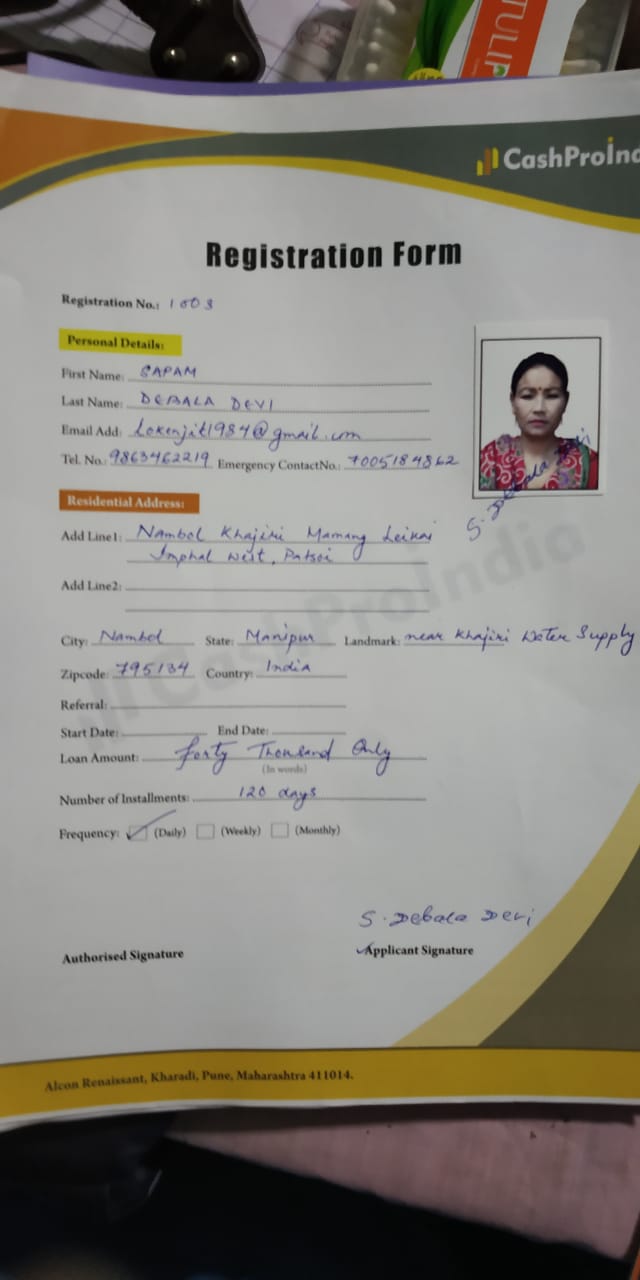 TULIP
CashProInd
Registration Form
Registration No.: 1003
Personal Details:
First Name: SAPAM
Last Name: DEBALA DEVI
Email Add: Lokenjit1984@gmail.com
Tel. No.: 9863462219 Emergency ContactNo.: 7005184862
S. Debala Devi
Residential Address:
Add Line1: Nambol Khajiri Mamang Leikai
Imphal West, Patsoi
Add Line2:
CashProIndia
City: Nambol State: Manipur Landmark: near Khajiri Water Supply
Zipcode: 795134 Country: India
Referral:
Start Date: End Date:
Loan Amount: forty Thousand Only
(In words)
Number of Installments: 120 days
Frequency: (Daily) (Weekly) (Monthly)
S. Debala Devi
Authorised Signature Applicant Signature
Alcon Renaissant, Kharadi, Pune, Maharashtra 411014.